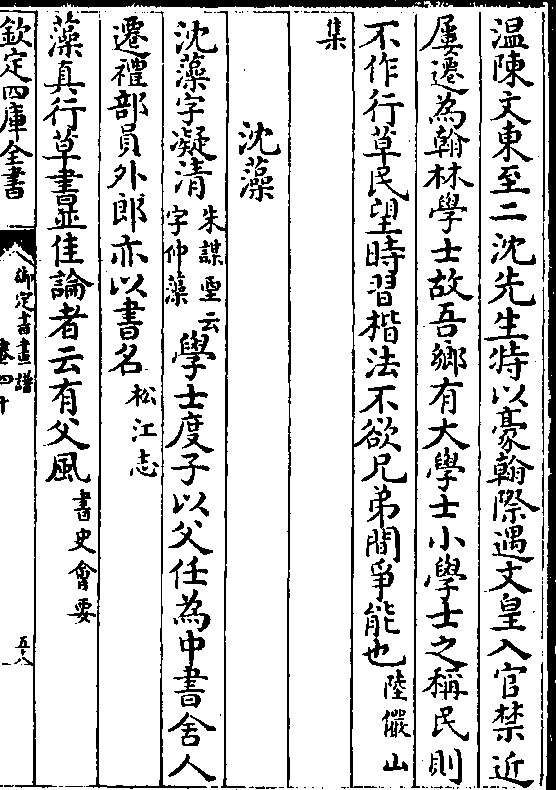 温陳文東至二沈先生特以豪翰際遇文皇入官禁近
屢遷為翰林學士故吾鄉有大學士小學士之稱民則
不作行草民望時習楷法不欲兄弟間爭能也陸儼山
集
沈藻
沈藻字凝清朱謀垔云字仲藻學士度子以父任為中書舍人
遷禮部員外郎亦以書名松江志
藻真行草書㝡佳論者云有父風書史會要
欽定四庫全書
御定書畫譜
卷四十
五八